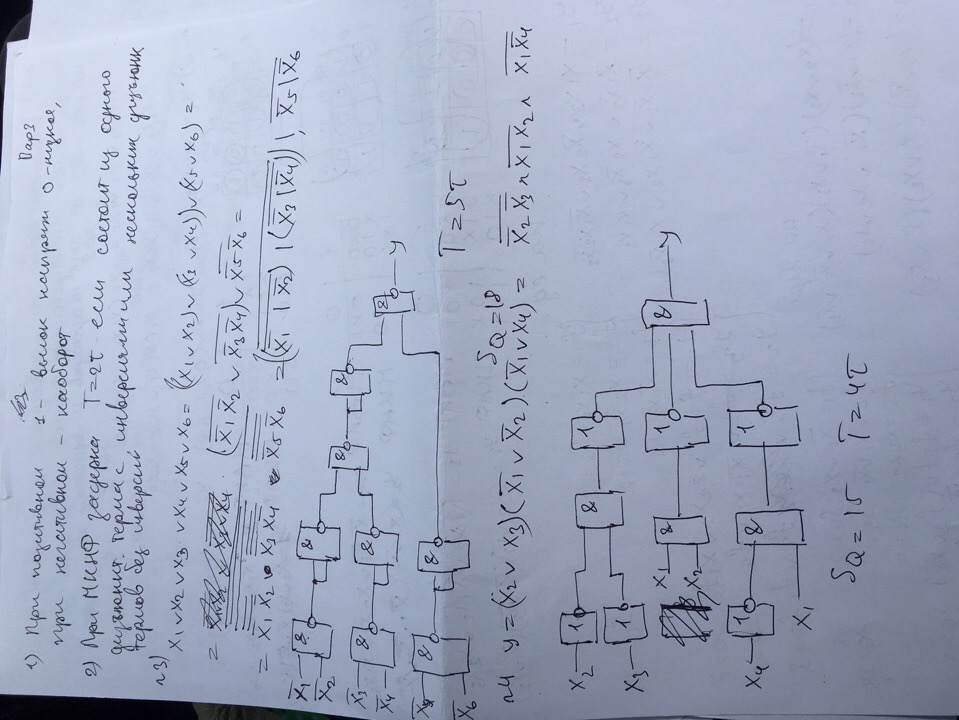 Вар3
1) При позитивной 1 - высок напряж 0-низкое,
при негативной - наоборот
2) При МКНФ задержка T=2τ если состоит из одного
дизъюнкт. терма с инверсиями или нескольких дизъюнк
термов без инверсий
√3)
X₁∨X₂∨X₃∨X₄∨X₅∨X₆ = ((X₁∨X₂)∨(X₃∨X₄))∨(X₅∨X₆) =
X̅₁
X̅₂
&
&
X̅₃
X̅₄
&
&
&
&
&
y
X̅₆
&
&
T=5τ
S_Q=18
√4 y=(X₂∨X₃)(X̅₁∨X̅₂)(X̅₁∨X₄)=
X₂
1
&
1
X₃
1
X₁
X₂
&
1
&
y
X₄
1
&
1
X₁
S_Q=15 T=4τ